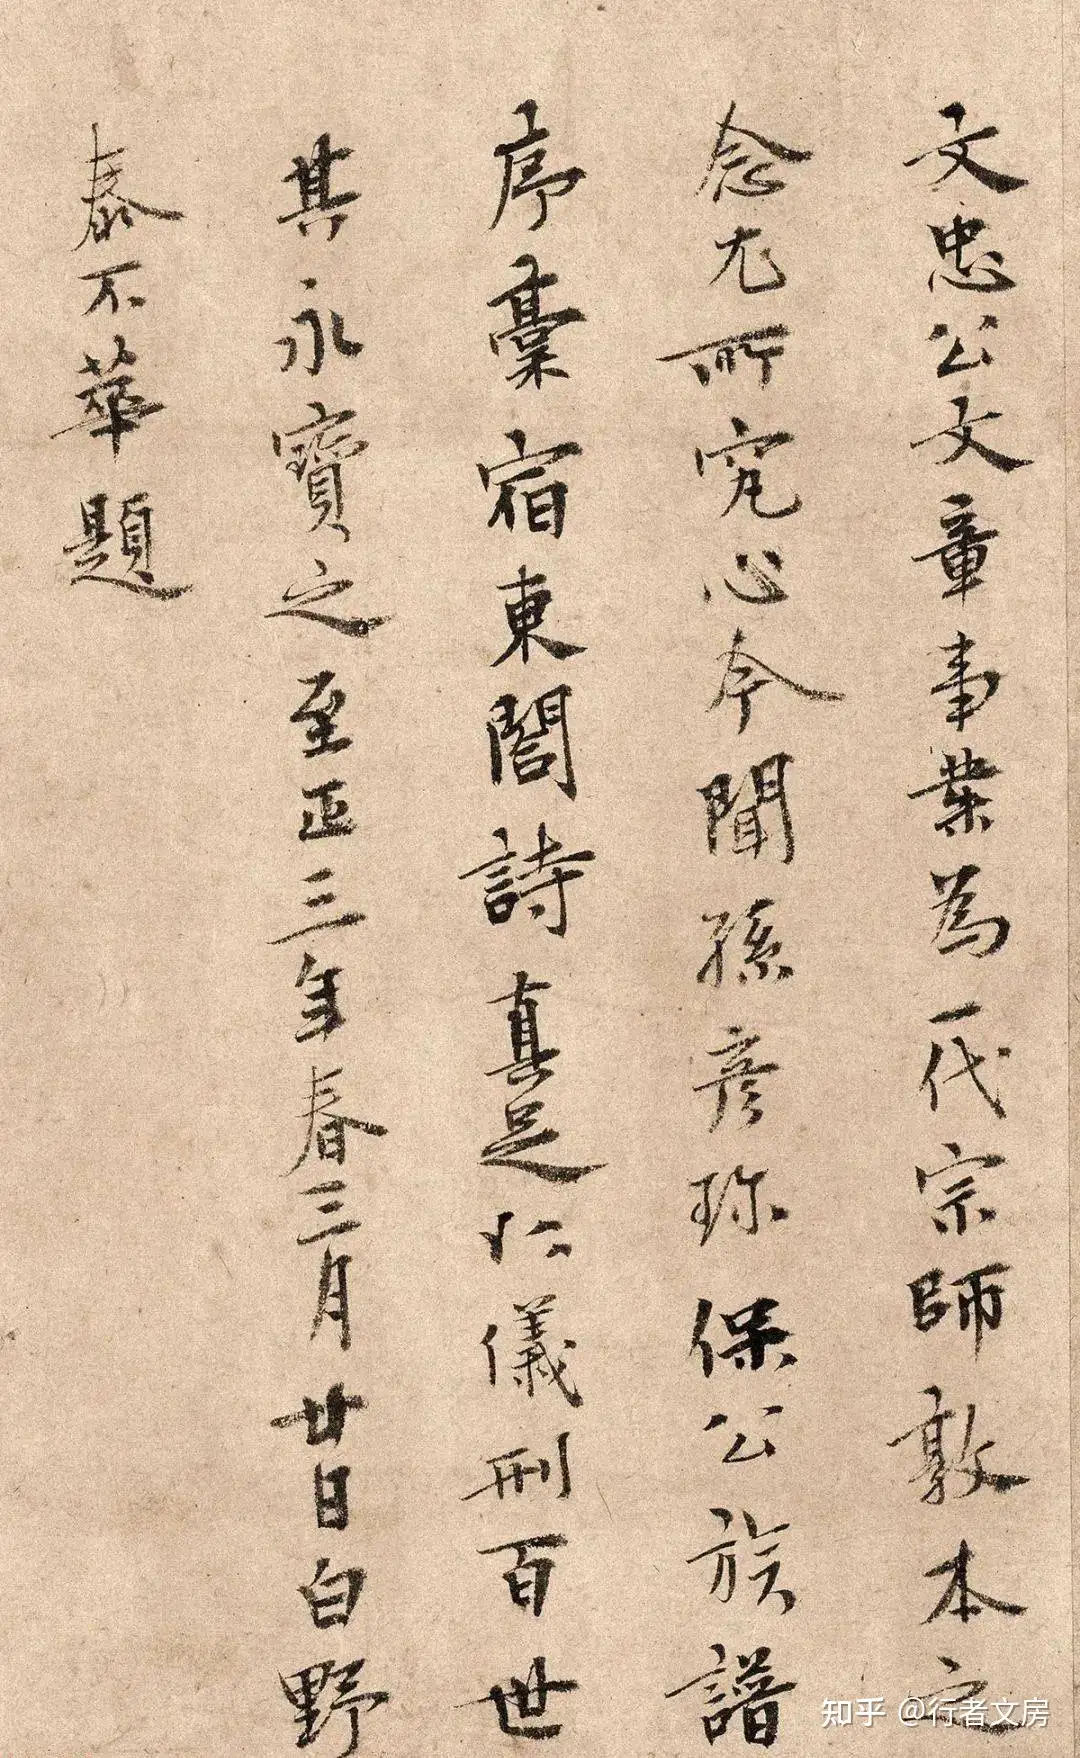 文忠公文章事業為一代宗師敦本之
念尤所究心今聞孫彥珎保公族譜
序藁宿東閤詩真足以儀刑百世
其永寶之至正三年春三月廿日白野
泰不華題
知乎 @行者文房